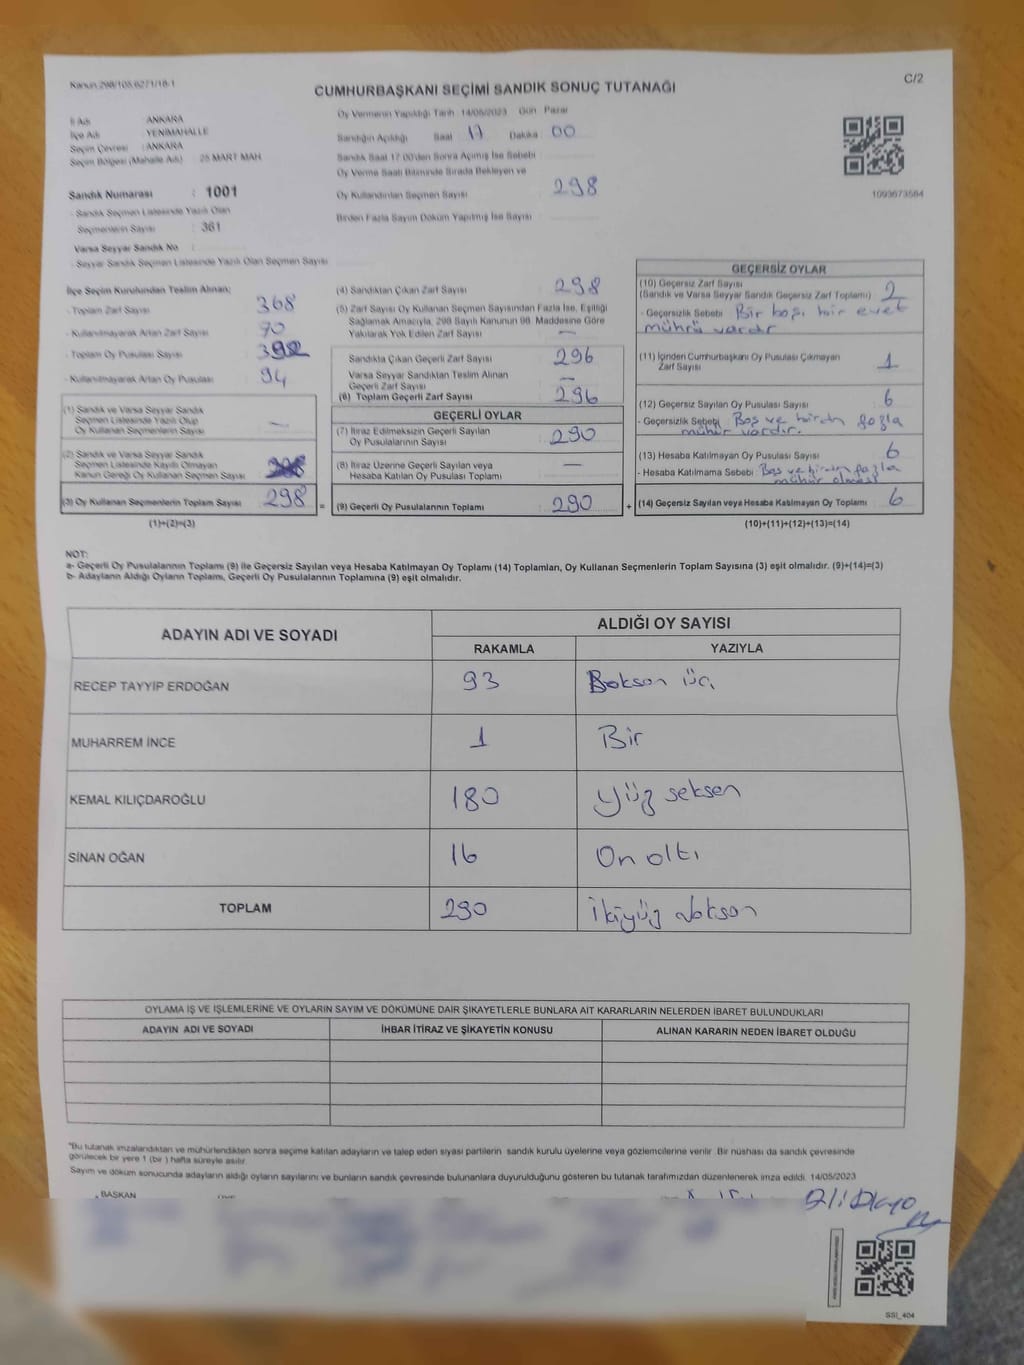 Kanun 298/105.6271/18-1
C/2
CUMHURBAŞKANI SEÇİMİ SANDIK SONUÇ TUTANAĞI
İl Adı : ANKARA
İlçe Adı : YENİMAHALLE
Seçim Çevresi : ANKARA
Seçim Bölgesi (Mahalle Adı) 25 MART MAH.
Sandık Numarası : 1001
- Sandık Seçmen Listesinde Yazılı Olan
Seçmenlerin Sayısı : 361
Varsa Seyyar Sandık No
- Seyyar Sandık Seçmen Listesinde Yazılı Olan Seçmen Sayısı
Oy Vermenin Yapıldığı Tarih 14/05/2023 Gün Pazar
Sandığın Açıldığı Saat 17 Dakika 00
Sandık Saat 17.00'den Sonra Açılmış İse Sebebi
Oy Verme Saati Bitiminde Sırada Bekleyen ve
Oy Kullandırılan Seçmen Sayısı 298
Birden Fazla Sayım Döküm Yapılmış İse Sayısı
1093673584
İlçe Seçim Kurulundan Teslim Alınan;
- Toplam Zarf Sayısı 368
- Kullanılmayarak Artan Zarf Sayısı 70
- Toplam Oy Pusulası Sayısı 392
- Kullanılmayarak Artan Oy Pusulası 94
(1) Sandık ve Varsa Seyyar Sandık
Seçmen Listesinde Yazılı Olup
Oy Kullanan Seçmenlerin Sayısı —
(2) Sandık ve Varsa Seyyar Sandık
Seçmen Listesinde Kayıtlı Olmayan
Kanun Gereği Oy Kullanan Seçmen Sayısı
(3) Oy Kullanan Seçmenlerin Toplam Sayısı 298 =
(1)+(2)=(3)
(4) Sandıktan Çıkan Zarf Sayısı : 298
(5) Zarf Sayısı Oy Kullanan Seçmen Sayısından Fazla İse, Eşitliği
Sağlamak Amacıyla, 298 Sayılı Kanunun 98. Maddesine Göre
Yakılarak Yok Edilen Zarf Sayısı : —
Sandıkta Çıkan Geçerli Zarf Sayısı : 296
Varsa Seyyar Sandıktan Teslim Alınan
Geçerli Zarf Sayısı : —
(6) Toplam Geçerli Zarf Sayısı : 296
GEÇERLİ OYLAR
(7) İtiraz Edilmeksizin Geçerli Sayılan
Oy Pusulalarının Sayısı : 290
(8) İtiraz Üzerine Geçerli Sayılan veya
Hesaba Katılan Oy Pusulası Toplamı : —
(9) Geçerli Oy Pusulalarının Toplamı : 290 +
GEÇERSİZ OYLAR
(10) Geçersiz Zarf Sayısı
(Sandık ve Varsa Seyyar Sandık Geçersiz Zarf Toplamı) : 2
- Geçersizlik Sebebi : Bir boşı bir evet
mührü vardır
(11) İçinden Cumhurbaşkanı Oy Pusulası Çıkmayan
Zarf Sayısı 1
(12) Geçersiz Sayılan Oy Pusulası Sayısı : 6
- Geçersizlik Sebebi Boş ve birdn fazla
mühür vardır.
(13) Hesaba Katılmayan Oy Pusulası Sayısı : 6
- Hesaba Katılmama Sebebi : Boş ve birdn fazla
mühür olması
(14) Geçersiz Sayılan veya Hesaba Katılmayan Oy Toplamı : 6
(10)+(11)+(12)+(13)=(14)
NOT:
a- Geçerli Oy Pusulalarının Toplamı (9) ile Geçersiz Sayılan veya Hesaba Katılmayan Oy Toplamı (14) Toplamları, Oy Kullanan Seçmenlerin Toplam Sayısına (3) eşit olmalıdır. (9)+(14)=(3)
b- Adayların Aldığı Oyların Toplamı, Geçerli Oy Pusulalarının Toplamına (9) eşit olmalıdır.
ADAYIN ADI VE SOYADI ALDIĞI OY SAYISI
RAKAMLA YAZIYLA
RECEP TAYYİP ERDOĞAN 93 Doksan üç
MUHARREM İNCE 1 Bir
KEMAL KILIÇDAROĞLU 180 Yüz seksen
SİNAN OĞAN 16 On altı
TOPLAM 290 İkiyüz doksan
OYLAMA İŞ VE İŞLEMLERİNE VE OYLARIN SAYIM VE DÖKÜMÜNE DAİR ŞİKAYETLERLE BUNLARA AİT KARARLARIN NELERDEN İBARET BULUNDUKLARI
ADAYIN ADI VE SOYADI İHBAR İTİRAZ VE ŞİKAYETİN KONUSU ALINAN KARARIN NEDEN İBARET OLDUĞU
"Bu tutanak imzalandıktan ve mühürlendikten sonra seçime katılan adayların ve talep eden siyasi partilerin sandık kurulu üyelerine veya gözlemcilerine verilir. Bir nüshası da sandık çevresinde
görülecek bir yere 1 (bir ) hafta süreyle asılır.
Sayım ve döküm sonucunda adayların aldığı oyların sayılarını ve bunların sandık çevresinde bulunanlara duyurulduğunu gösteren bu tutanak tarafımızdan düzenlenerek imza edildi. 14/05/2023
BAŞKAN
SSI_404